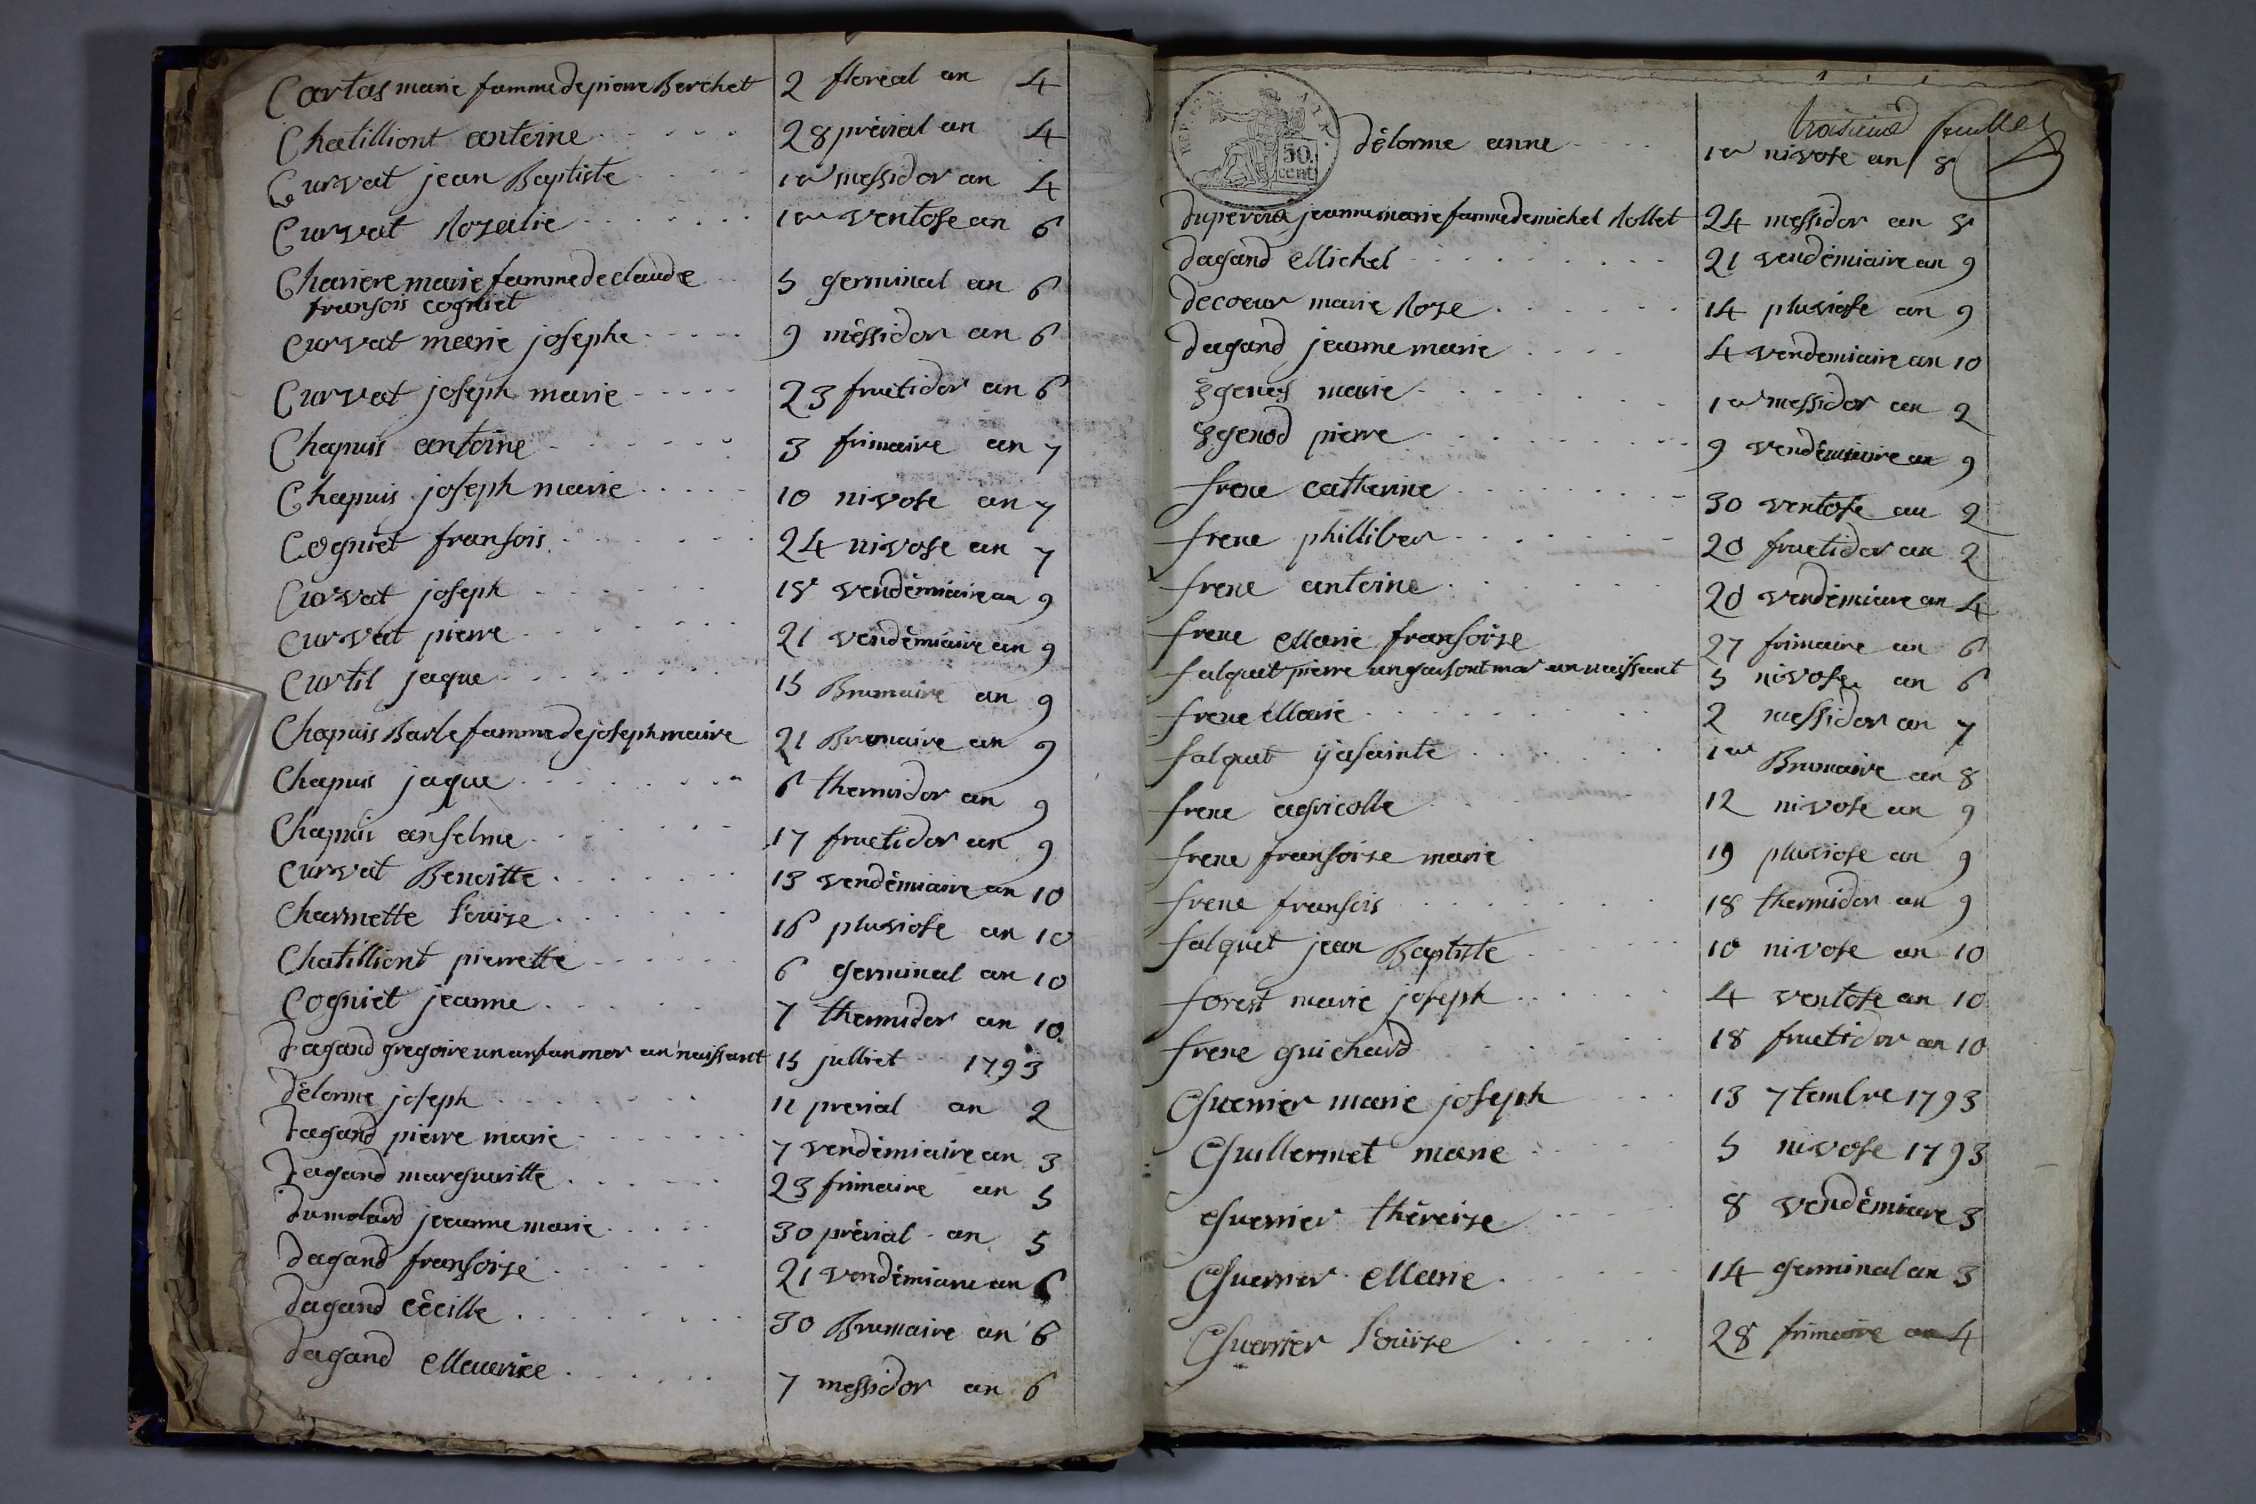 Cartas marie famme de pierre Berchet 2 floréal an 4
Chatilliont antoine 28 prérial an 4
Curvat jean Baptiste 1er messidor an 4
Curvat Rozalie 1er ventose an 6
Chariere marie famme de claude 5 germinal an 6
fransois cogniet
Curvat marie josephe 9 méssidor an 6
Curvat joseph marie 23 fructidor an 6
Chapuis antoine 3 frimaire an 7
Chapuis joseph marie 10 nivose an 7
Cogniet fransois 24 nivose an 7
Curvat joseph 18 vendémiaire an 9
Curvat pierre 21 vendémiaire an 9
Curtil jaque 15 Brumaire an 9
Chapuis Barbe famme de joseph maire 21 Brumaire an 9
Chapuis jaque 6 thermidor an 9
Chapuis anselme 17 fructidor an 9
Curvat Benoitte 13 vendémiaire an 10
Charmette Louize 16 pluviose an 10
Chatilliont pierrette 6 germinal an 10
Cogniet jeanne 7 thermidor an 10
Dagand gregoire un anfan mor an naissant 15 julliet 1793
Délorme joseph 11 prerial an 2
Dagand pierre marie 7 vendémiaire an 3
Dagand marguaritte 23 frimaire an 5
Dumolard jeanne marie 30 prérial an 5
Dagand fransoise 21 vendémiaire an 6
Dagand cécille 30 Brumaire an 6
Dagand Maurice 7 messidor an 6
troisieme feuillet
50.
cent
Délorme anne 1er nivose an 8
Duperoux jeanne marie famme de michel Rollet 24 messidor an 8
Dagand Michel 21 vendémiaire an 9
Decoeur marie Roze 14 pluviose an 9
Dagand jeanne marie 4 vendemiaire an 10
Egenod marie 1er messidor an 2
Egenod pierre 9 vendémiaire an 9
frene catherine 30 ventose an 2
frene philliber 20 fructidor an 2
frene antoine 20 vendémiaire an 4
frene Marie fransoise 27 frimaire an 6
falquet pierre un garsont mor an naissant 5 nivose an 6
frene Marie 2 messidor an 7
falquet ÿasainte 1er Brumaire an 8
frene agricolle 12 nivose an 9
frene fransoise marie 19 pluviose an 9
frene fransois 18 thermidor an 9
falquet jean Baptiste 10 nivose an 10
forest marie joseph 4 ventose an 10
frene guichard 18 fructidor an 10
Guerrier marie joseph 13 7tembre 1793
Guillermet marie 5 nivose 1793
Guerrier théreize 8 vendémiaire 3
Guerrier Marie 14 germinal an 3
Guerrier Louize 28 frimaire an 4